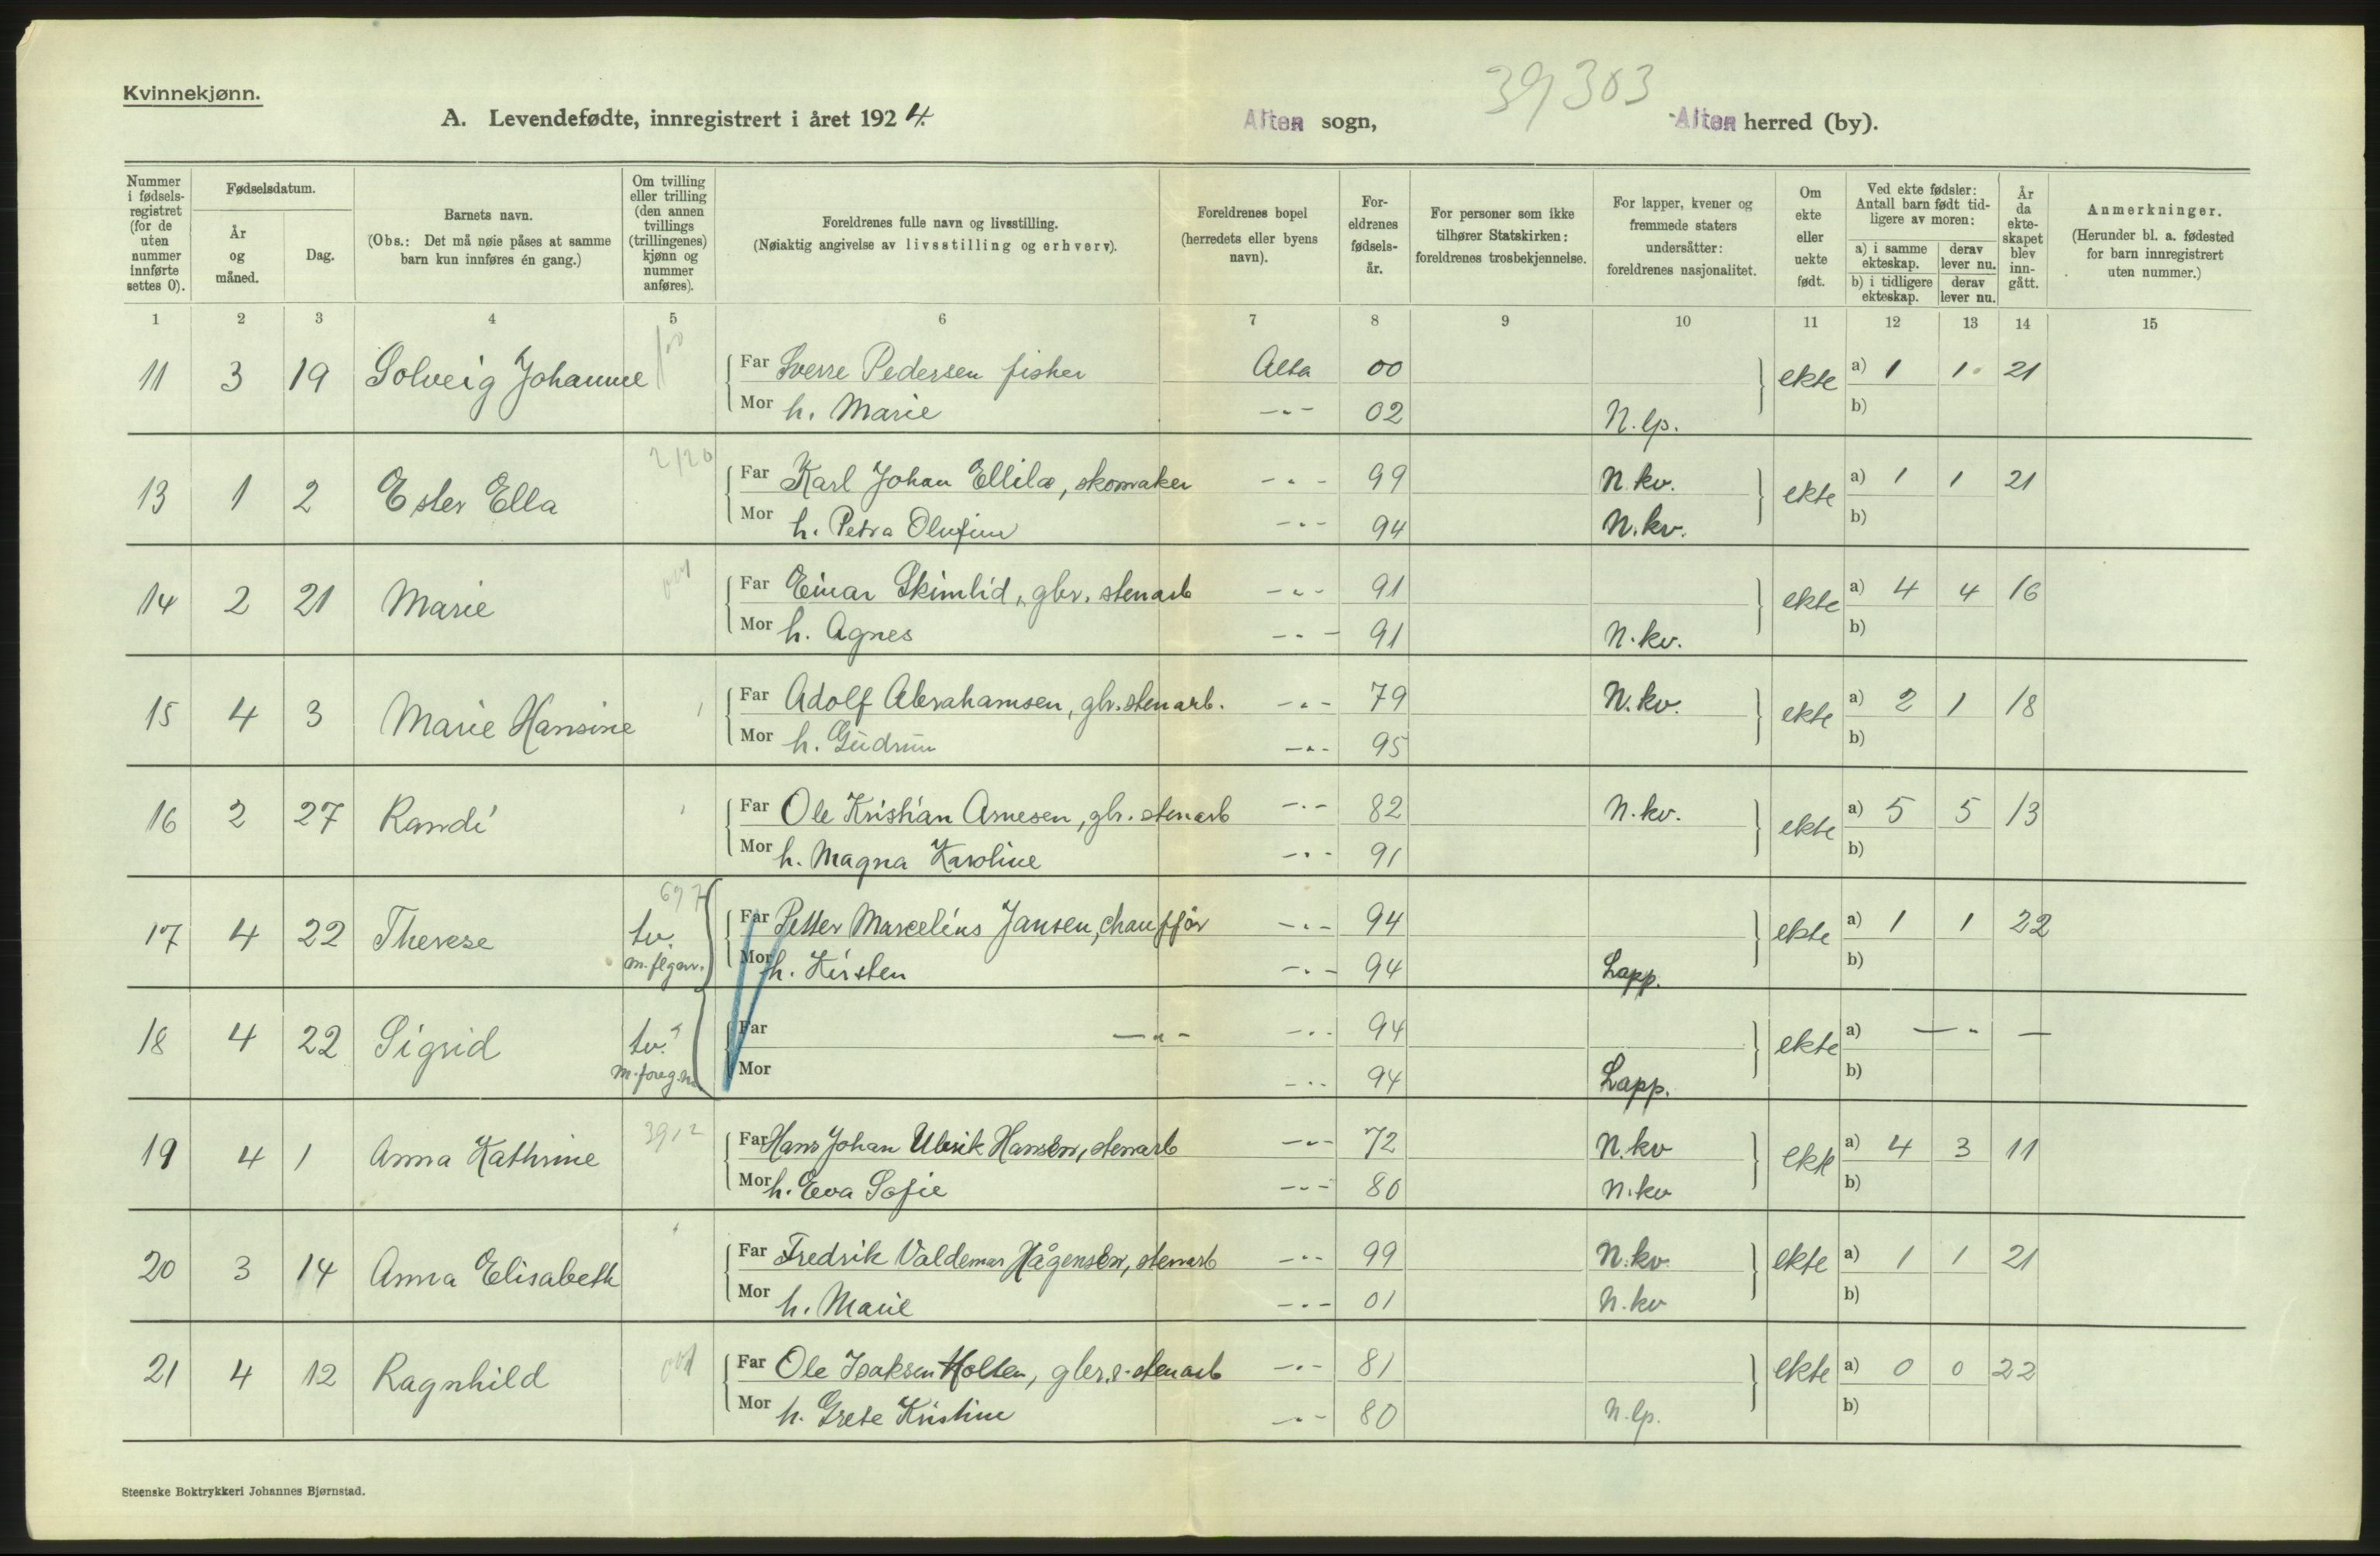 Kvinnekjønn.
39303
A. Levendefødte, innregistrert i året 1924. Alten sogn, Alten herred (by).
Nummer i fødselsregistret (for de uten nummer innførte settes 0).
Fødselsdatum.
År og måned.
Dag.
Barnets navn.
(Obs.: Det må nøie påses at samme barn kun innføres én gang.)
Om tvilling eller trilling (den annen tvillings (trillingenes) kjønn og nummer anføres).
Foreldrenes fulle navn og livsstilling.
(Nøiaktig angivelse av livsstilling og erhverv).
Foreldrenes bopel (herredets eller byens navn).
Foreldrenes fødselsår.
For personer som ikke tilhører Statskirken: foreldrenes trosbekjennelse.
For lapper, kvener og fremmede staters undersåtter: foreldrenes nasjonalitet.
Om ekte eller uekte født.
Ved ekte fødsler: Antall barn født tidligere av moren:
a) i samme ekteskap. derav lever nu.
b) i tidligere ekteskap. derav lever nu.
År da ekteskapet blev inngått.
Anmerkninger.
(Herunder bl. a. fødested for barn innregistrert uten nummer.)
1 2 3 4 5 6 7 8 9 10 11 12 13 14 15
11 3 19 Solveig Johanne Far Sverre Pedersen fisker Alta 00 ekte a) 1 1 21
Mor h. Marie -"- 02 N. lp. b)
2120
13 1 2 Ester Ella Far Karl Johan Ellilæ, skomaker -"- 99 N. kv. ekte a) 1 1 21
Mor h. Petra Olufine -"- 94 N. kv. b)
14 2 21 Marie Far Einar Skimlid, gbr. stenarb -"- 91 ekte a) 4 4 16
Mor h. Agnes -"- 91 N. kv. b)
15 4 3 Marie Hansine Far Adolf Abrahamsen, gbr. stenarb. -"- 79 N. kv. ekte a) 2 1 18
Mor h. Gudrun -"- 95 b)
16 2 27 Randi Far Ole Kristian Arnesen, gbr. stenarb -"- 82 N. kv. ekte a) 5 5 13
Mor h. Magna Karoline -"- 91 b)
17 4 22 Therese tv. m. flgnr. Far Petter Marcelius Jansen, chauffør -"- 94 ekte a) 1 1 22
Mor h. Kirsten -"- 94 Lapp. b)
18 4 22 Sigrid tv. m. foreg. nr. Far -"- -"- 94 ekte a) -"- -
Mor -"- 94 Lapp. b)
3912
19 4 1 Anna Kathrine Far Hans Johan Ulrik Hansen, stenarb -"- 72 N. kv ekte a) 4 3 11
Mor h. Eva Sofie -"- 80 N. kv b)
20 3 14 Anna Elisabeth Far Fredrik Valdemar Hågensen, stenarb -"- 99 N. kv. ekte a) 1 1 21
Mor h. Marie -"- 01 N. kv b)
21 4 12 Ragnhild Far Ole Isaksen Holten, gbr. s. stenarb -"- 81 ekte a) 0 0 22
Mor h. Grete Kristine -"- 80 N. lp. b)
Steenske Boktrykkeri Johannes Bjørnstad.